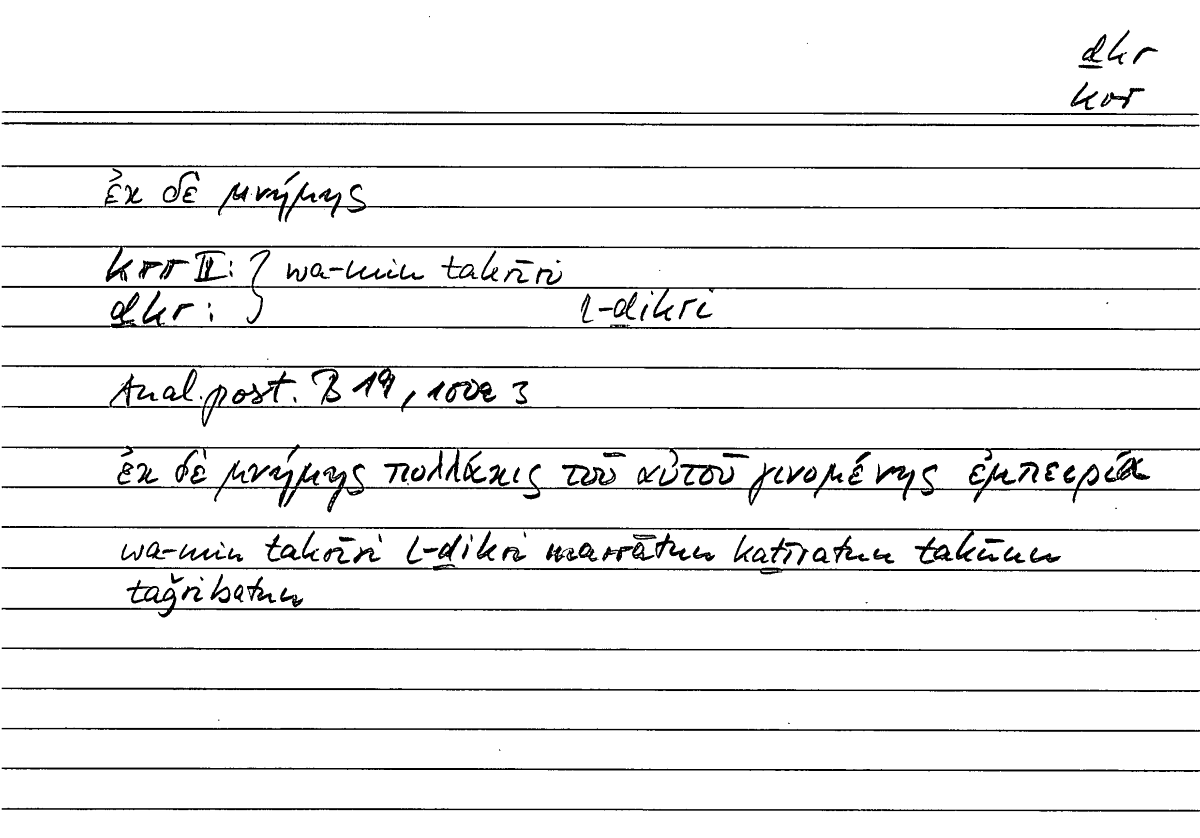 ḏkr
krr
ἐκ δὲ μνήμης
krr II: } wa-min takrīri
ḏkr: l-ḏikri
Anal. post. B 19, 100a 3
ἐκ δὲ μνήμης πολλάκις τοῦ αὐτοῦ γινομένης ἐμπειρία
wa-min takrīri l-ḏikri marrātun kaṯīratun takūnu
taǧribatun